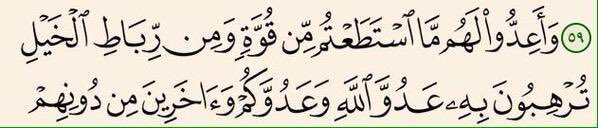 ٥٩ وَأَعِدُّوا۟ لَهُم مَّا ٱسْتَطَعْتُم مِّن قُوَّةٍ وَمِن رِّبَاطِ ٱلْخَيْلِ
تُرْهِبُونَ بِهِۦ عَدُوَّ ٱللَّهِ وَعَدُوَّكُمْ وَءَاخَرِينَ مِن دُونِهِمْ